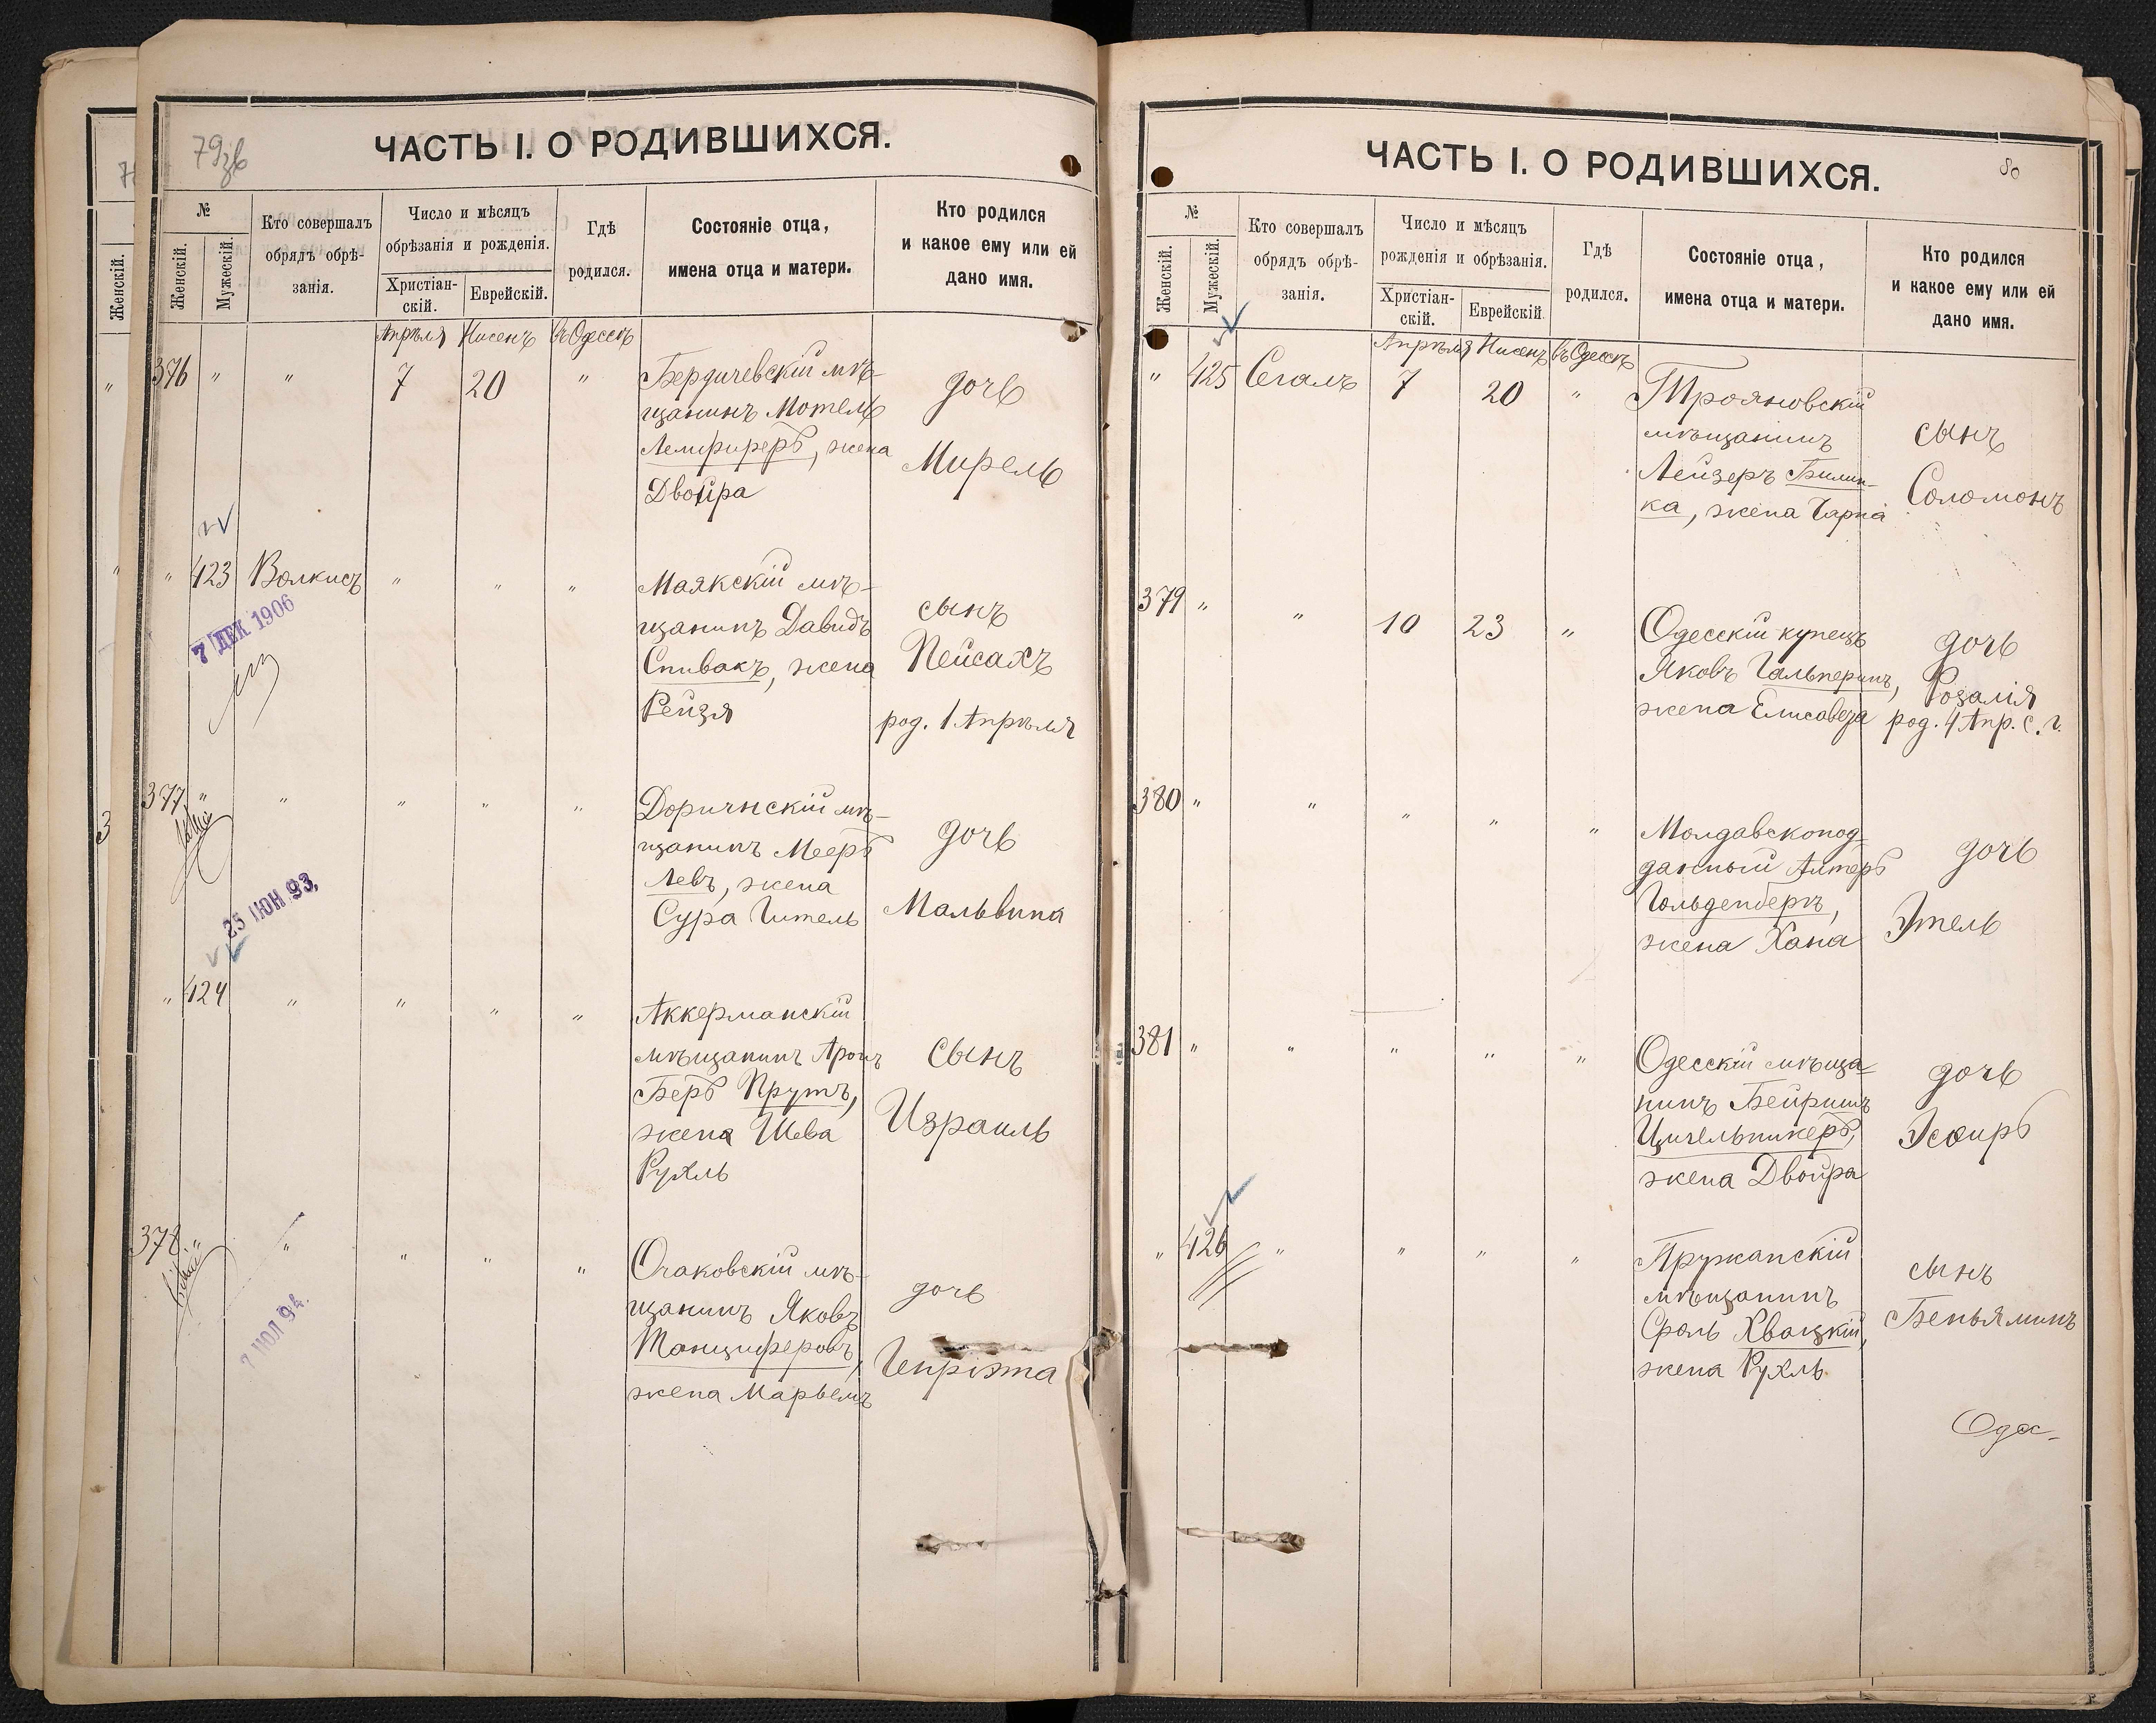 79зв
ЧАСТЬ I. О РОДИВШИХСЯ.
№
Женскій.
Мужескій.
Кто совершалъ
обрядъ обрѣ-
занія.
Число и мѣсяцъ
обрѣзанія и рожденія.
Христіан-
скій.
Еврейскій.
Гдѣ
родился.
Состояніе отца,
имена отца и матери.
Кто родился
и какое ему или ей
дано имя.
Женскій.
Апрѣля Нисенъ въ Одессѣ
376 " " 7 20 " Бердичевскій мѣ-
щанинъ Мотель
Лемфиреръ, жена
Двойра
дочь
Мирель
" 423 Волкисъ " " " Маякскій мѣ-
щанинъ Давидъ
Спивакъ, жена
Рейзя
сынъ
Пейсахъ
род. 1 Апрѣля
7 ДЕК 1906
377 " " " " " Доричнскій мѣ-
щанинъ Мееръ
Левъ, жена
Сура Гитель
дочь
Мальвина
25 ІЮН 93.
" 424 " " " " Аккерманскій
мѣщанинъ Аронъ
Беръ Прутъ,
жена Шева
Рухль
сынъ
Израиль
378 " " " " " Очаковскій мѣ-
щанинъ Яковъ
Танциферовъ,
жена Марьемъ
дочь
Генріэта
7 ІЮЛ 94.
80
ЧАСТЬ I. О РОДИВШИХСЯ.
№
Женскій.
Мужескій.
Кто совершалъ
обрядъ обрѣ-
занія.
Число и мѣсяцъ
рожденія и обрѣзанія.
Христіан-
скій.
Еврейскій
Гдѣ
родился.
Состояніе отца,
имена отца и матери.
Кто родился
и какое ему или ей
дано имя.
Апрѣля Нисенъ въ Одессѣ
" 425 Сегалъ 7 20 " Трояновскій
мѣщанинъ
Лейзеръ Билин-
ка, жена Чарна
сынъ
Соломонъ
379 " " 10 23 " Одесскій купецъ
Яковъ Гальперинъ,
жена Елисавета
дочь
Розалія
род. 4 Апр. с. г.
380 " " " " " Молдавскопод-
данный Алтеръ
Гольденбергъ,
жена Хана
дочь
Этель
381 " " " " " Одесскій мѣща-
нинъ Бейришъ
Цигельникеръ,
жена Двойра
дочь
Эсѳиръ
" 426 " " " " Пружанскій
мѣщанинъ
Сроль Хвацкій,
жена Рухль
сынъ
Беньяминъ
Одес-